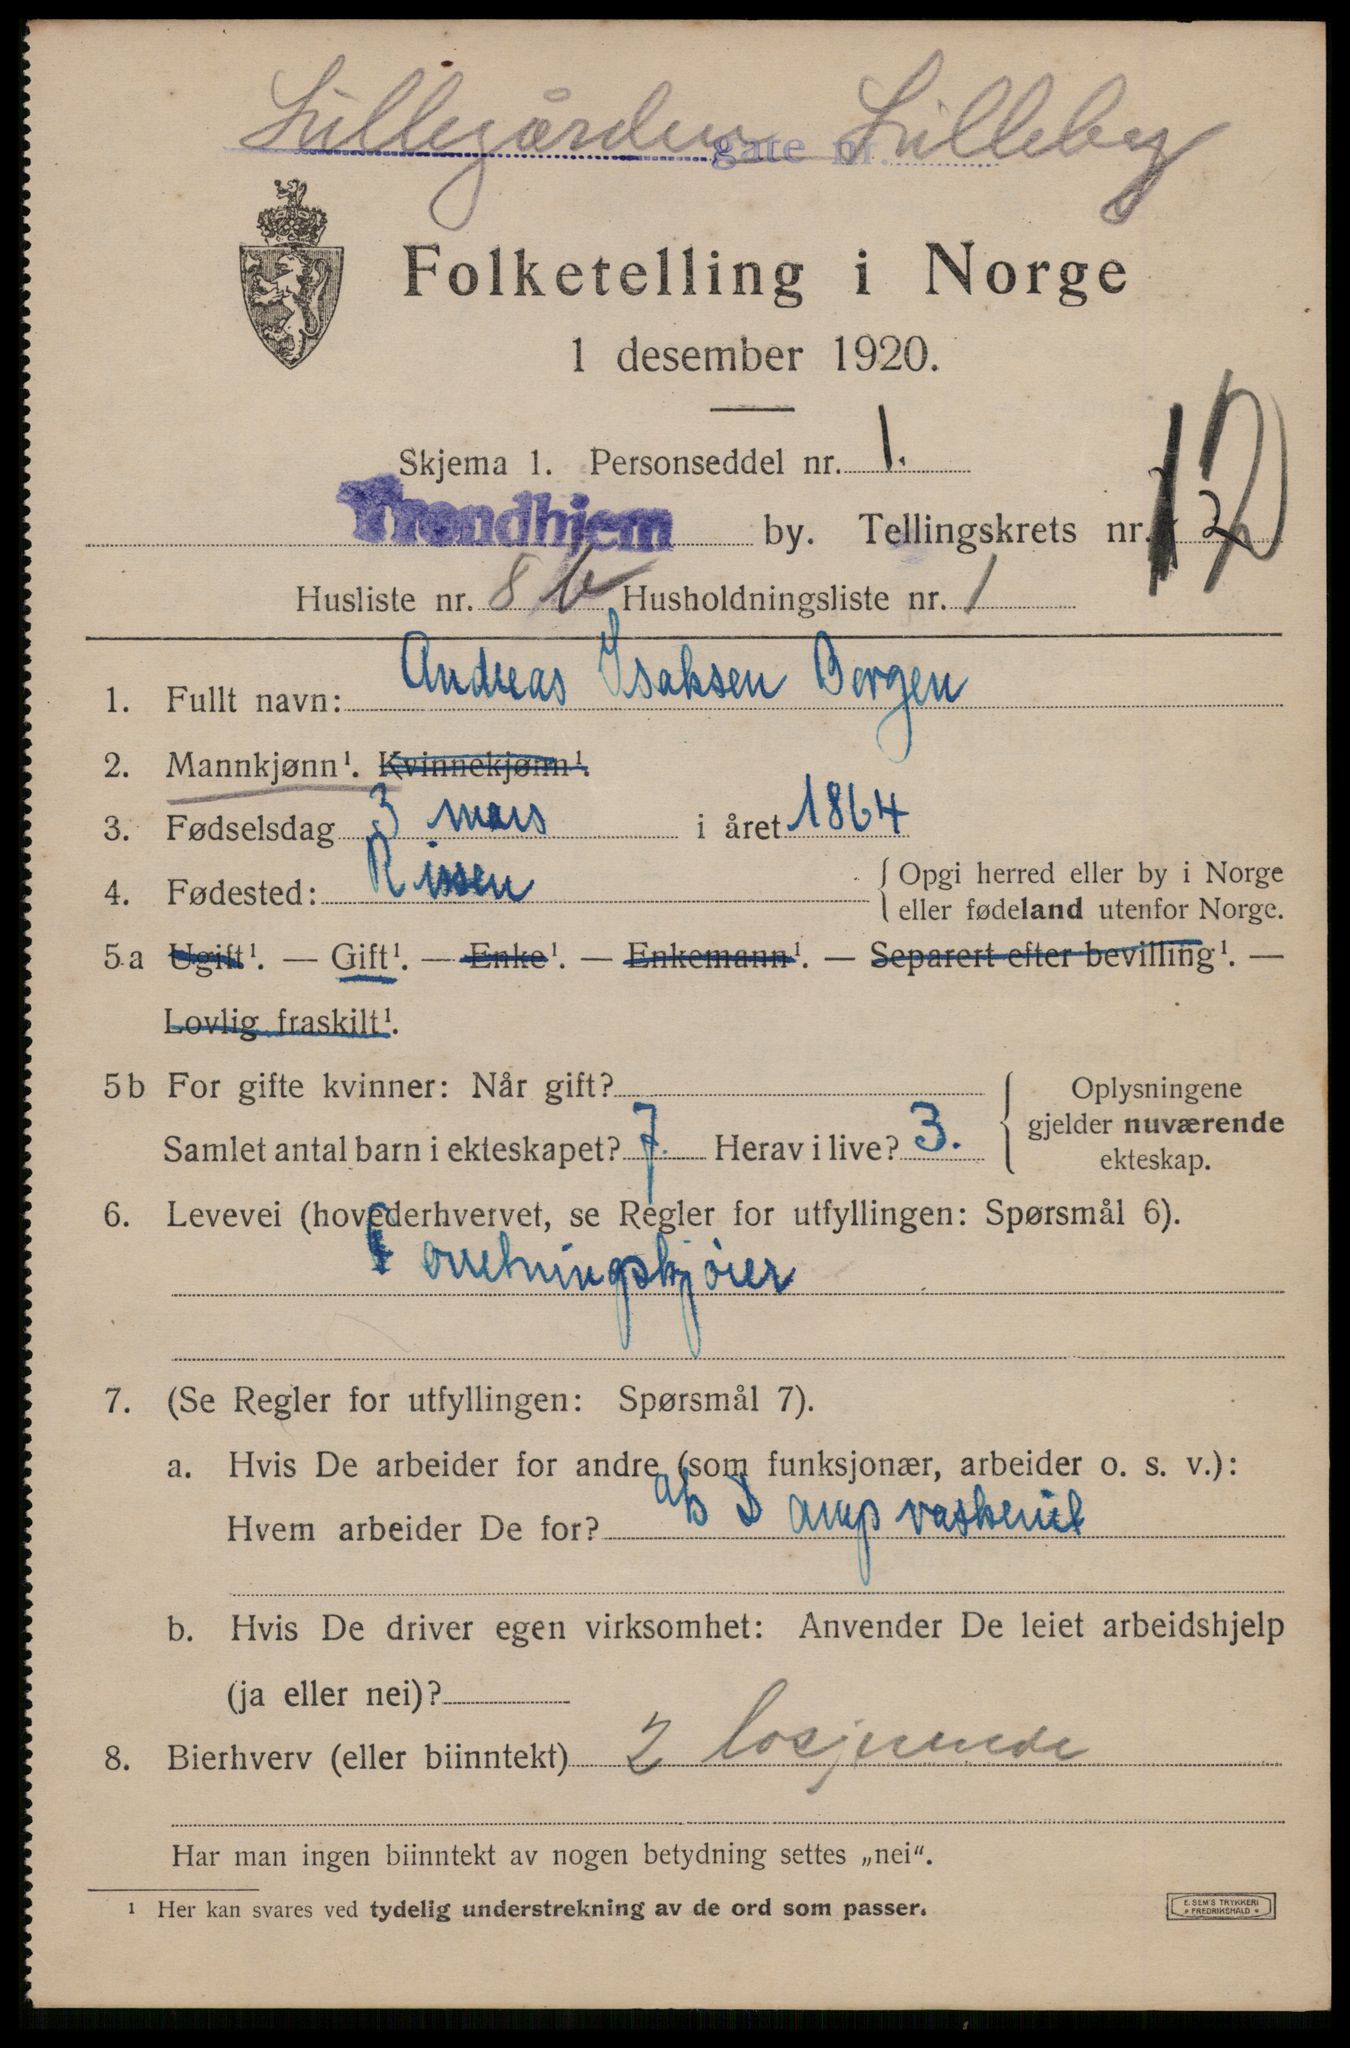 Lillegården gate nr. Lilleby
Folketelling i Norge
1 desember 1920.
Skjema 1. Personseddel nr. 1.
Trondhjem by. Tellingskrets nr. 12
Husliste nr. 8 b Husholdningsliste nr. 1
1. Fullt navn: Andreas Isaksen Borgen
2. Mannkjønn¹. Kvinnekjønn¹.
3. Fødselsdag 3 mars i året 1864
4. Fødested: Rissen { Opgi herred eller by i Norge
eller fødeland utenfor Norge.
5 a Ugift¹. — Gift¹. — Enke¹. — Enkemann¹. — Separert efter bevilling¹. —
Lovlig fraskilt¹.
5 b For gifte kvinner: Når gift?
Samlet antal barn i ekteskapet? 7. Herav i live? 3.
{ Oplysningene
gjelder nuværende
ekteskap.
6. Levevei (hovederhvervet, se Regler for utfyllingen: Spørsmål 6).
Forretningskjører
7. (Se Regler for utfyllingen: Spørsmål 7).
a. Hvis De arbeider for andre (som funksjonær, arbeider o. s. v.):
Hvem arbeider De for? Dampvaskeriet
b. Hvis De driver egen virksomhet: Anvender De leiet arbeidshjelp
(ja eller nei)?
8. Bierhverv (eller biinntekt) 2 losjerende
Har man ingen biinntekt av nogen betydning settes „nei“.
¹ Her kan svares ved tydelig understrekning av de ord som passer.
E. SEM'S TRYKKERI
FREDRIKSHALD